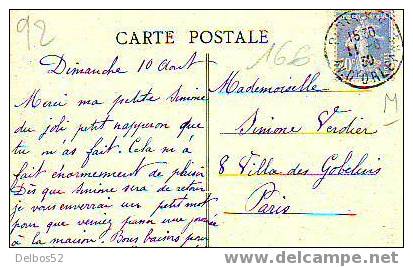 92
CARTE POSTALE
166
Dimanche 10 Août
Merci ma petite Simone
du joli petit napperon que
tu m'as fait. Cela m'a
fait énormement de plaisir
Dès que Simone sera de retour
je vous enverrai un petit mot
pour que veniez passer une journée
à la maison. Bons baisers pour
Mademoiselle
Simone Verdier
8 Villa des Gobelins
Paris
M
15 30
11
30
Delbos52
delcampe.net